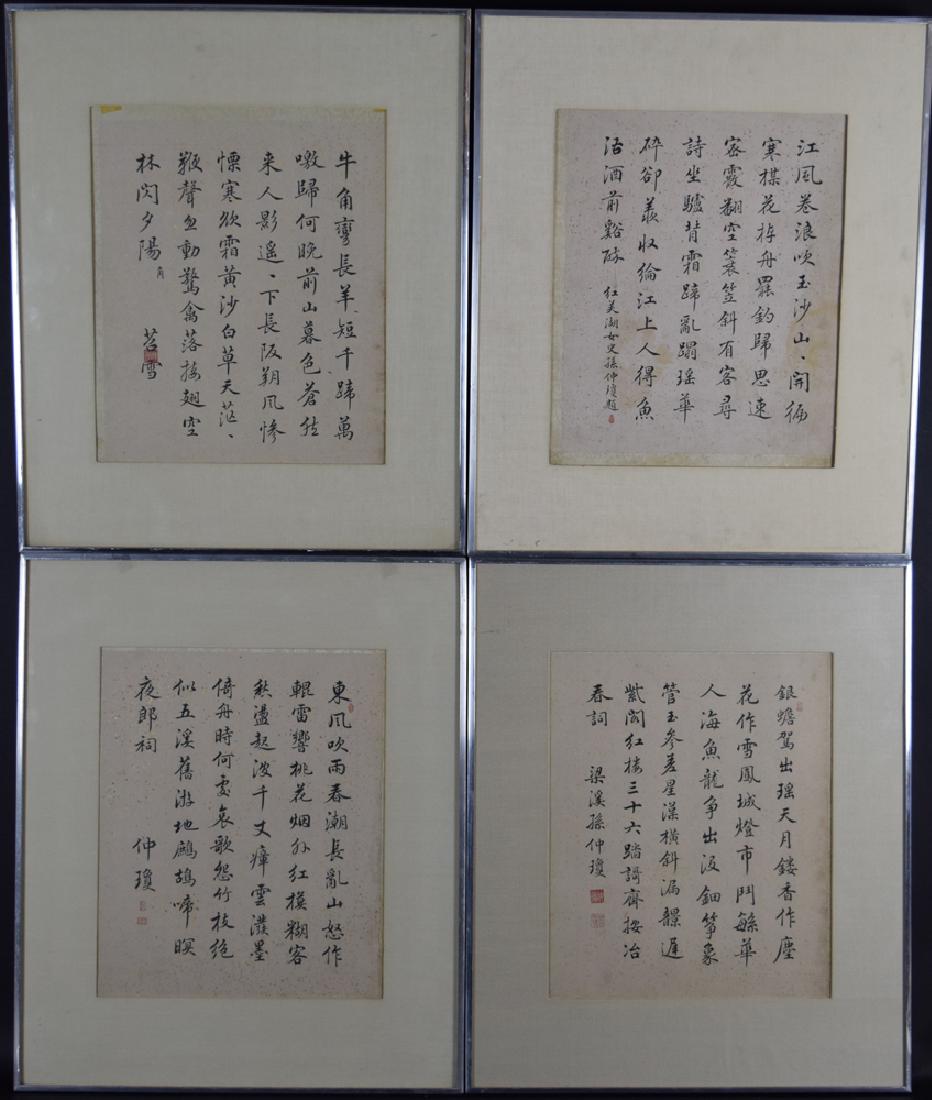 牛角彎長羊短千蹄萬
噭歸何晚前山暮色蒼然
来人影遥、下長阪朔風惨
慄寒欲霜黄沙白草天茫、
鞭聲忽動驚禽落接翅空
林閃夕陽 角
苕雪
江風卷浪吹玉沙山、開徧
寒楳花棹舟罷釣歸思速
密霰翻空簑笠斜有客尋
詩坐驢背霜蹄亂蹋瑶華
碎卻羡收綸江上人得魚
沽酒前谿酔 红芙湖女史孫仲瓊題
東風吹雨春潮長亂山怒作
輥雷響桃花烟外红模糊客
愁盪起波千丈瘴雲潑墨
倚舟時何處哀歌怨竹枝絶
似五溪舊游地鷓鴣啼暝
夜郎祠 仲瓊
銀蟾駕出瑶天月鏤香作塵
花作雪鳳城燈市鬥緐華
人海魚龍争出没鈿箏象
管玉參差星漢横斜漏遲
紫閣红樓三十六踏謌齊按冶
春詞 梁溪孫仲瓊